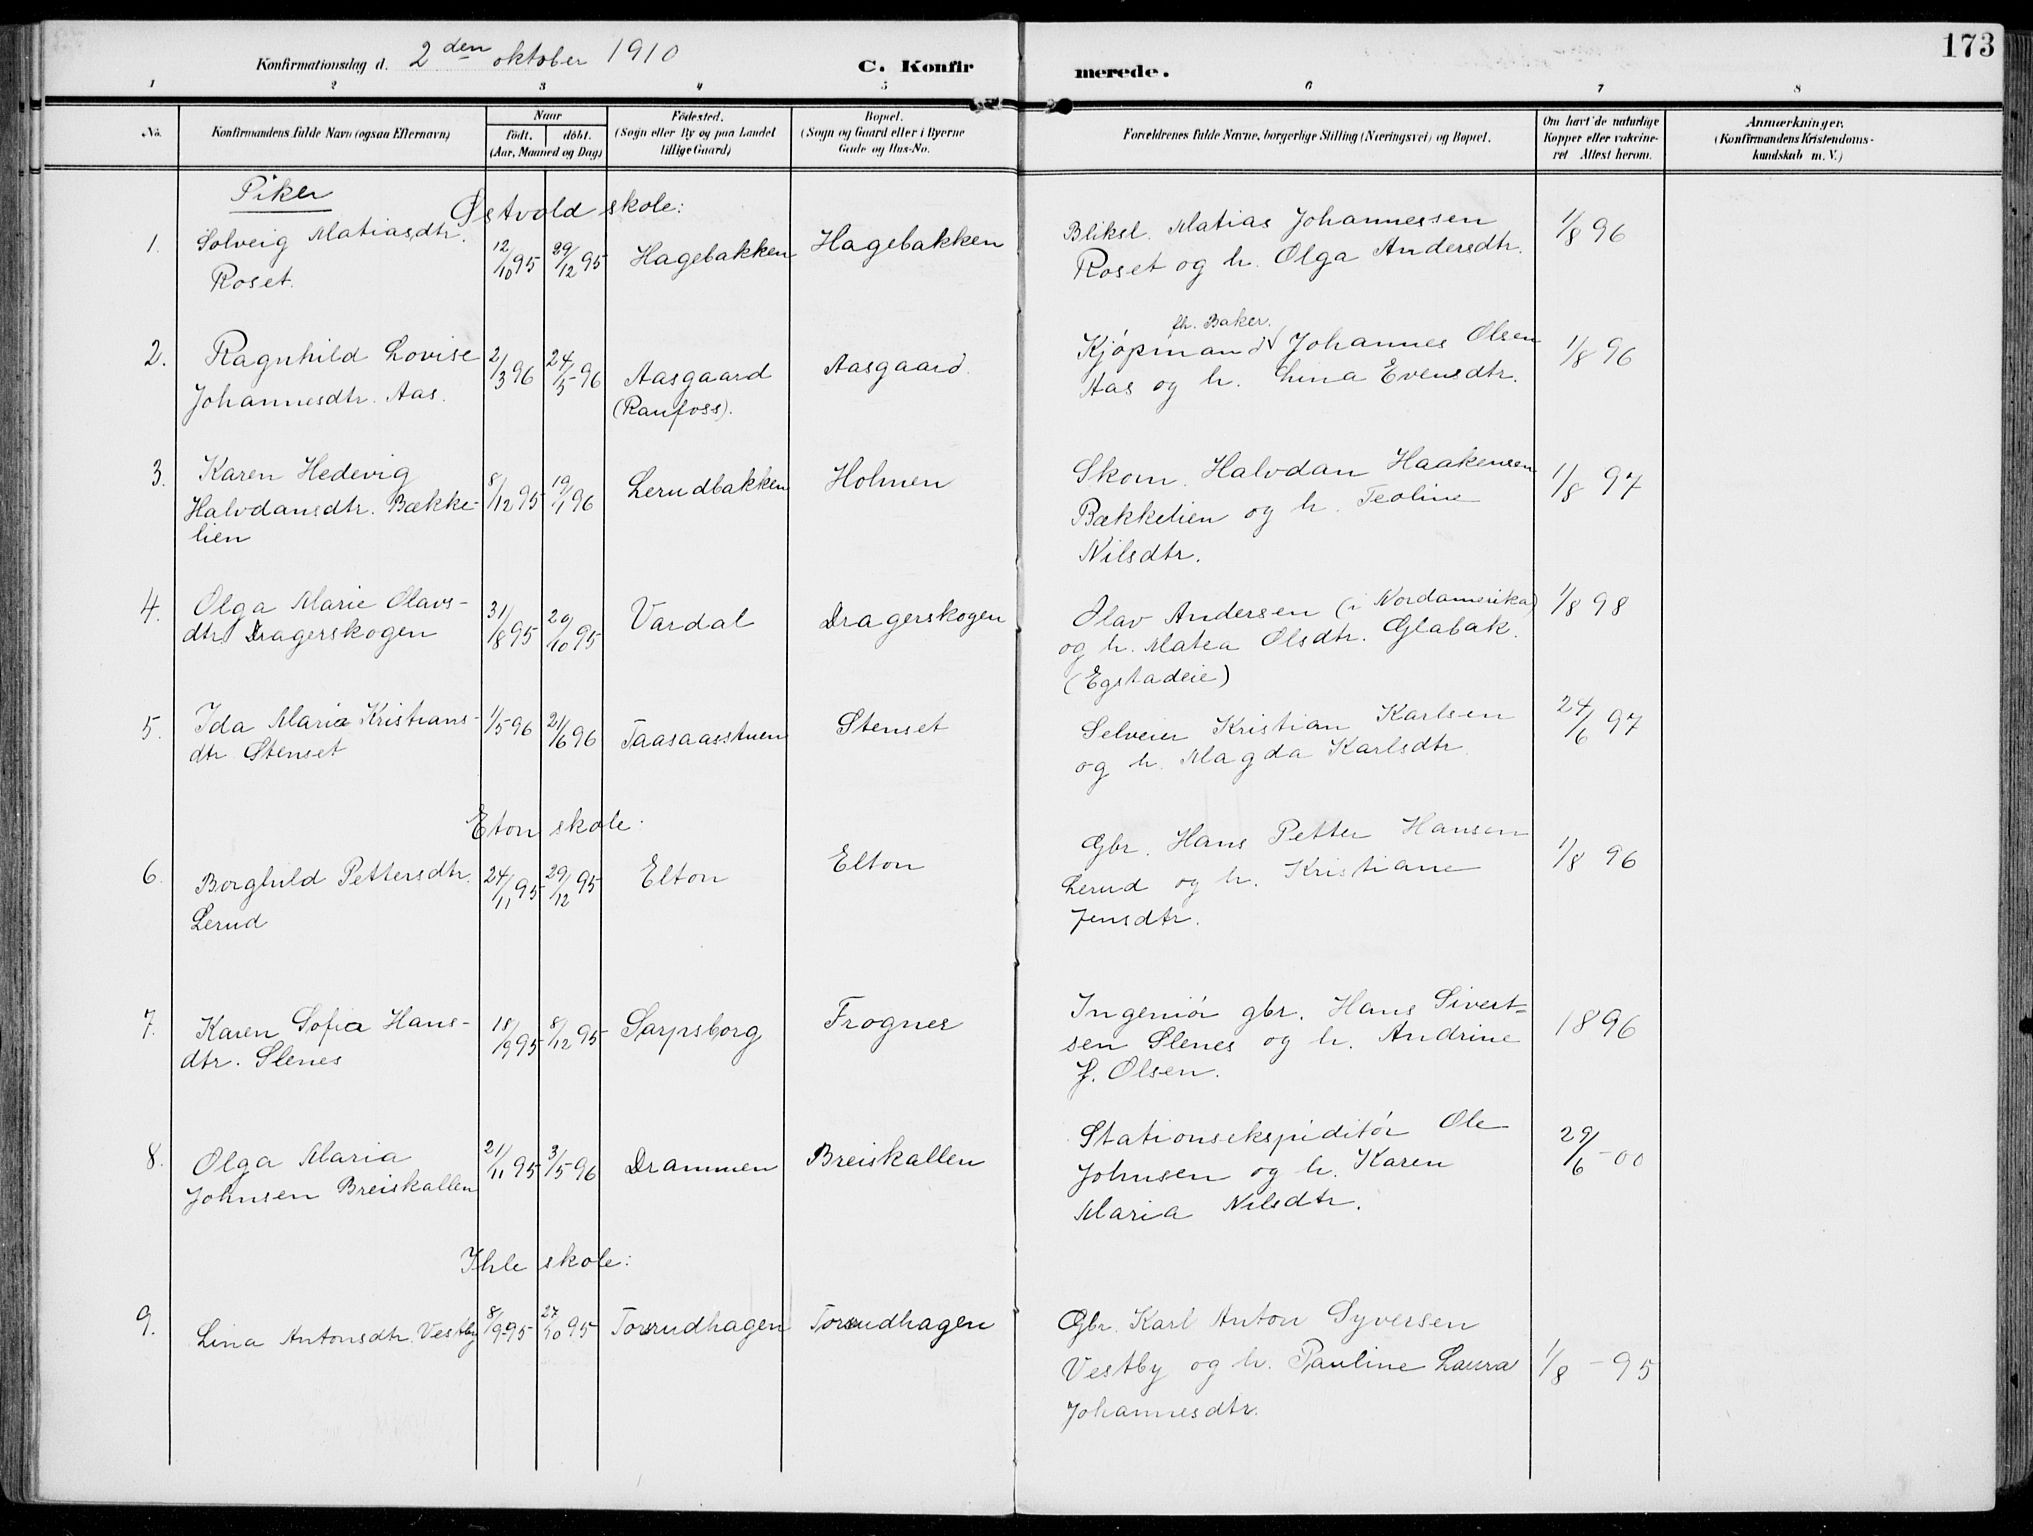 173
Konfirmationsdag d. 2den oktober 1910
C. Konfirmerede.
1 2 3 4 5 6 7 8
No.
Konfirmandens fulde Navn (ogsaa Efternavn)
Naar
født. døbt.
(Aar, Maaned og Dag)
Fødested.
(Sogn eller By og paa Landet
tillige Gaard)
Bopæl.
(Sogn og Gaard eller i Byerne
Gade og Hus-No.
Forældrenes fulde Navne, borgerlige Stilling (Næringsvei) og Bopæl.
Om havt de naturlige
Kopper eller vakcine-
ret Attest herom.
Anmærkninger,
(Konfirmandens Kristendoms-
kundskab m. V.)
Piker
Østvold skole:
1. Solveig Matiasdtr. 12/10 95 29/12 95 Hagebakken Hagebakken Bliksl. Matias Johannessen 1/8 96
Roset. Roset og h. Olga Andersdtr.
fh. Baker.
2. Ragnhild Lovise 2/3 96 24/5 96 Aasgaard Aasgaard. Kjøpmand Johannes Olsen 1/8 96
Johannesdtr. Aas. (Raufoss). Aas og h. Lina Evensdtr.
3. Karen Hedevig 8/12 95 19/1 96 Lerudbakken Holmen Skom. Halvdan Haakensen 1/8 97
Halvdansdtr. Bække- Bækkelien og h. Teoline
lien Nilsdtr.
4. Olga Marie Olavs- 31/8 95 20/10 95 Vardal Dragerskogen Olav Andersen (i Nordamerika) 1/8 98
dtr. Dragerskogen og h. Matea Olsdtr. Glabak.
(Egstadeie)
5. Ida Maria Kristians- 1/5 96 21/6 96 Taasaasstuen Stenset Selveier Kristian Karlsen 24/6 97
dtr Stenset og h. Magda Karlsdtr.
Eton skole:
6. Borghild Pettersdtr. 24/11 95 29/12 95 Elton Elton Gbr. Hans Petter Hansen 1/8 96
Lerud Lerud og h. Kristiane
Jensdtr.
7. Karen Sofia Hans- 18/9 95 8/12 95 Sarpsborg Frogner Ingeniør gbr. Hans Sivert= 1896
dtr. Slenes sen Slenes og h. Andrine
J. Olsen.
8. Olga Maria 21/11 95 3/5 96 Drammen Breiskallen Stationsekspiditør Ole 29/6 - 00
Johnsen Breiskallen Johnsen og h. Karen
Maria Nilsdtr.
Ihle skole:
9. Lina Antonsdtr. Vestby 8/9 95 27/10 95 Torrudhagen Torrudhagen Gbr. Karl Anton Syversen
Vestby og h. Pauline Laura 1/8 - 95
Johannesdtr.